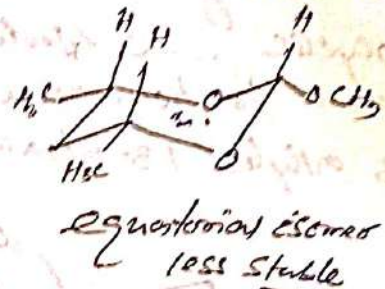 H
H
H
H3C
O
OCH3
H3C
O
equatorial isomer
less stable